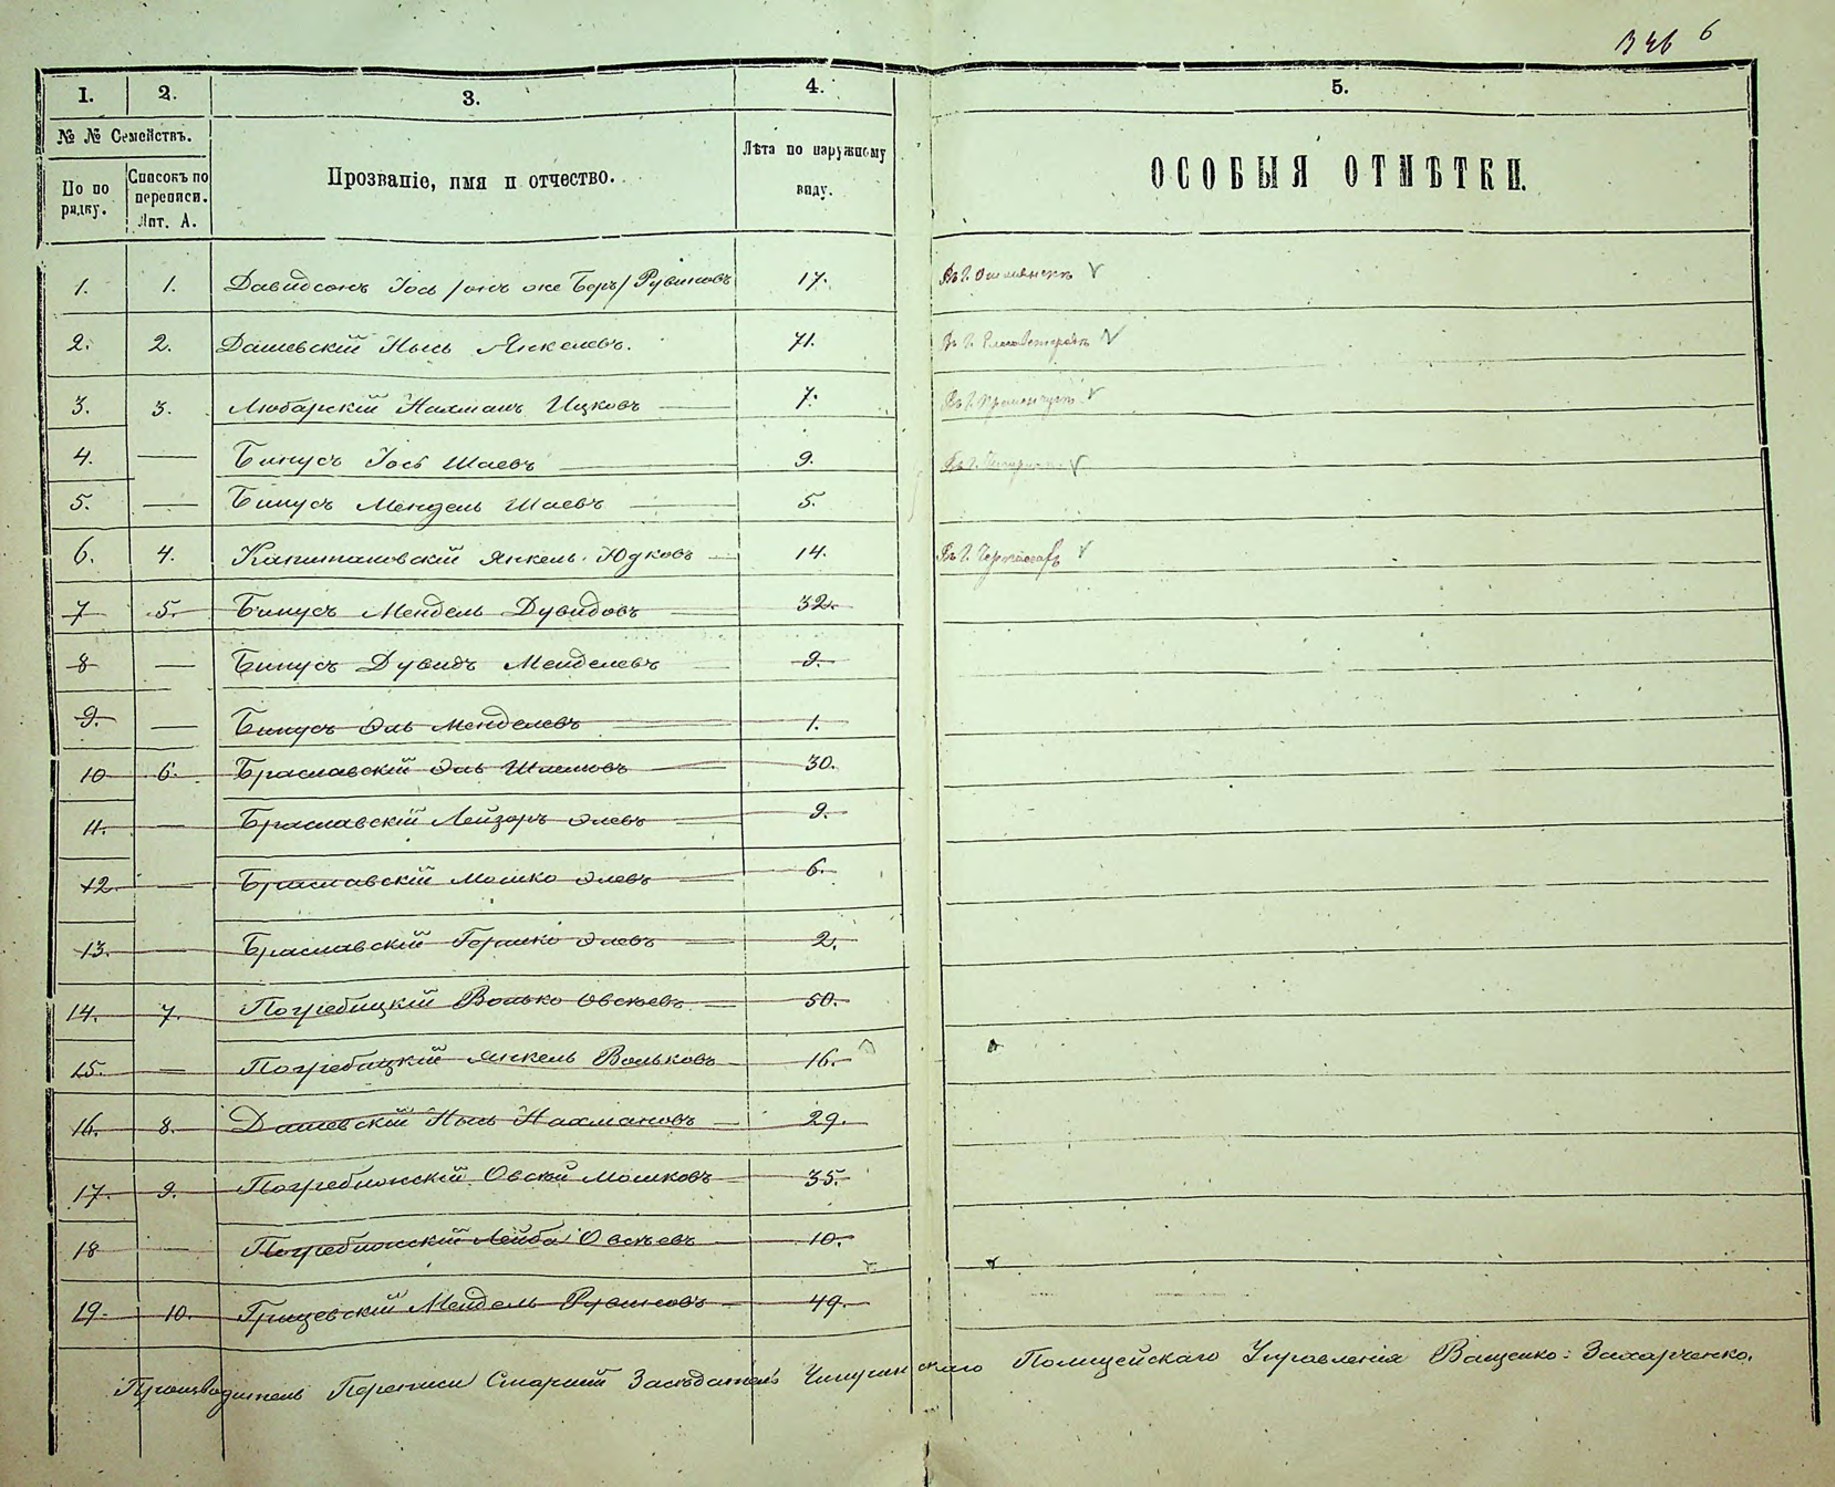 346 6
1. 2. 3. 4. 5.
№ № Семействъ.
По по рядку.
Списокъ по переписи. Лит. А.
Прозваніе, имя и отчество.
Лѣта по наружному виду.
ОСОБЫЯ ОТМѢТКИ.
1. 1. Давидсонъ Іось /онъ же Беръ/ Рувиновъ 17. Въ г.
2. 2. Дашевскій Нысь Янкелевъ. 71. Въ г. Елисаветградѣ
3. 3. Любарскій Нахманъ Ицковъ 7. Въ г. Кременчугѣ
4. — Бинусъ Іось Шаевъ 9. Въ г.
5. — Бинусъ Мендель Шаевъ 5.
6. 4. Капитановскій Янкель Юдковъ 14. Въ г. Черкассахъ
7 5. Бинусъ Мендель Дувидовъ 32.
8 — Бинусъ Дувидъ Менделевъ 9.
9. — Бинусъ Эль Менделевъ 1.
10 6. Браславскій Эль 30.
11. — Браславскій Лейзоръ Элевъ 9.
12. — Браславскій Мошко Элевъ 6.
13. — Браславскій Гершко Элевъ 2.
14. 7. Погребицкій Волько Овсѣевъ 50.
15. — Погребицкій Янкель Вольковъ 16.
16. 8. Дашевскій Нысь Нахмановъ 29.
17. 9. Погребинскій Овсѣй Мошковъ 35.
18 — Погребинскій Лейба Овсѣевъ 10.
19. 10. Грищевскій Мендель Рувиновъ 49.
Производитель Переписи Старшій Засѣдатель Чигиринскаго Полицейскаго Управленія Ващенко-Захарченко.